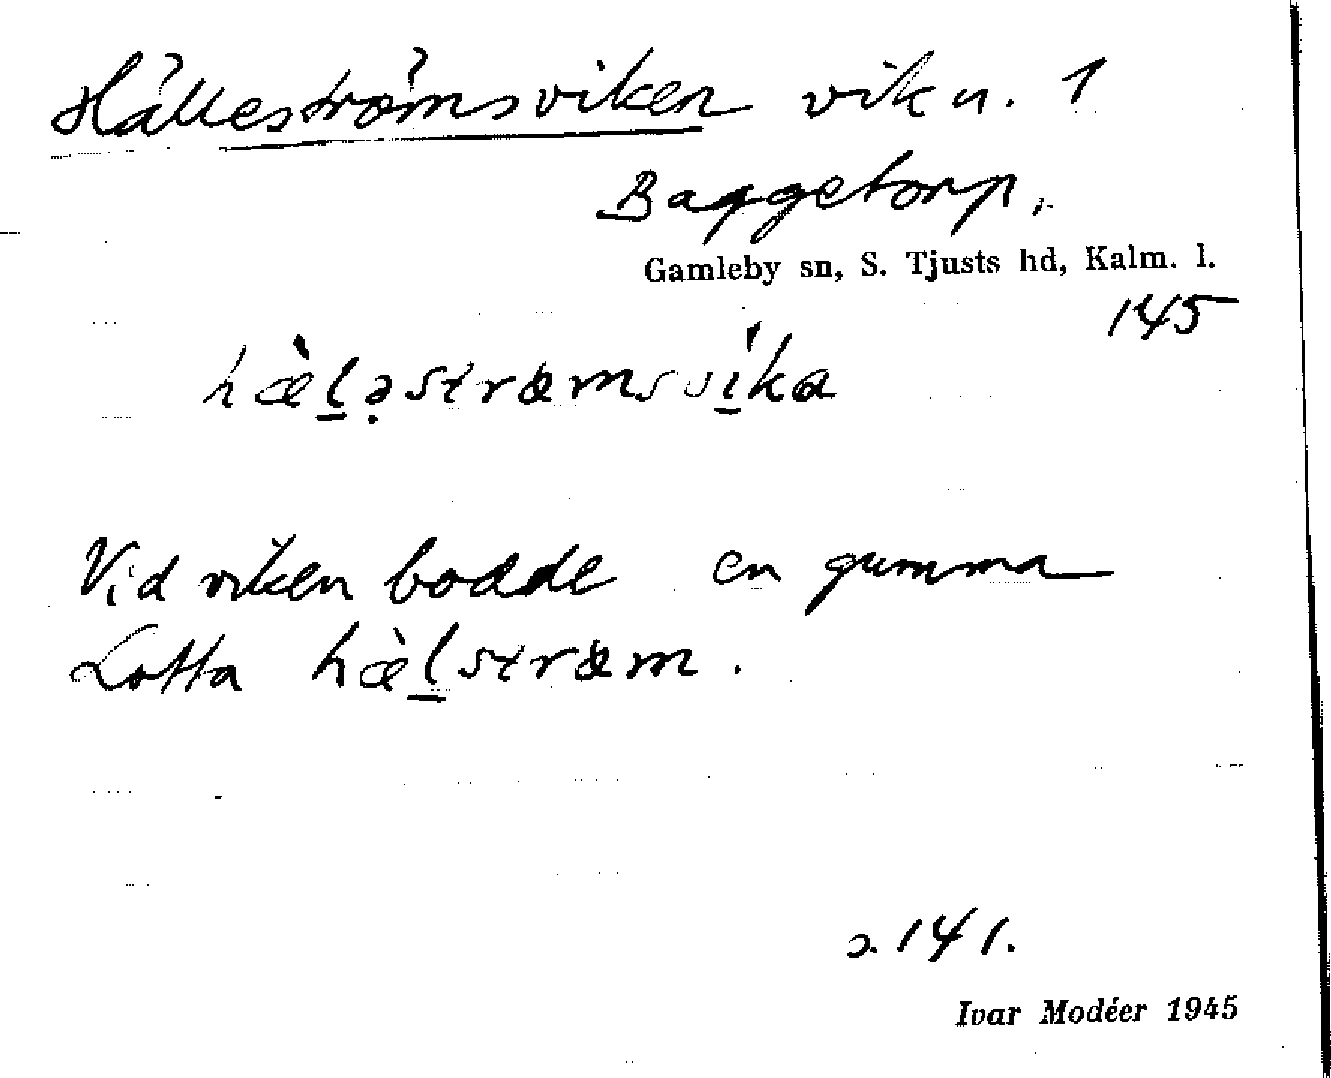 Hälleströmsviken vik n. 1
Baggetorp.
Gamleby sn, S. Tjusts hd, Kalm. l.
145
hæ̀l̲ə̣strœmsví̲ka
Vid viken bodde en gumma
Lotta hæ̀l̲strœm.
s. 141.
Ivar Modéer 1945